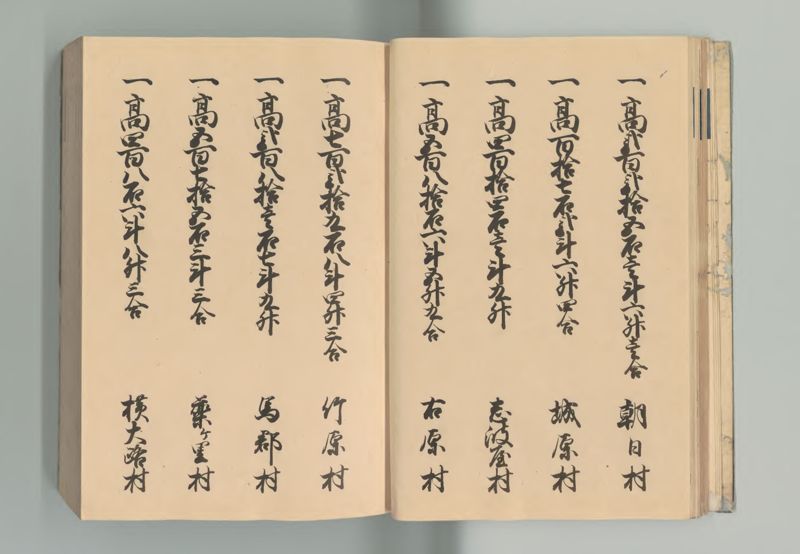 一高弐百弐拾五石壱斗六升壱合 朝日村
一高百拾七石弐斗六升四合 城原村
一高四百拾四石壱斗九升 志波屋村
一高五百八拾石六斗五升九合 右原村
一高七百弐拾九石八斗四升三合 竹原村
一高弐百八拾壱石七斗九升 馬郡村
一高五百七拾五石三斗三合 藥ヶ里村
一高四百八石六斗八升三合 横大路村